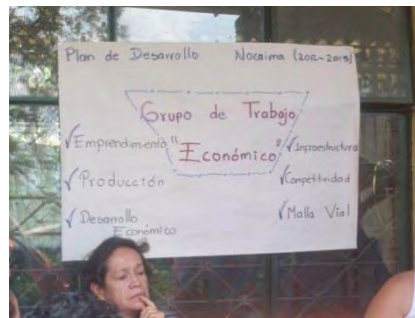 Plan de Desarrollo Nocaima (2012-2015)
Grupo de Trabajo
"Económico"
✓Emprendimiento
✓Producción
✓Desarrollo
Económico
✓Infraestructura
✓Competitividad
✓Malla Vial